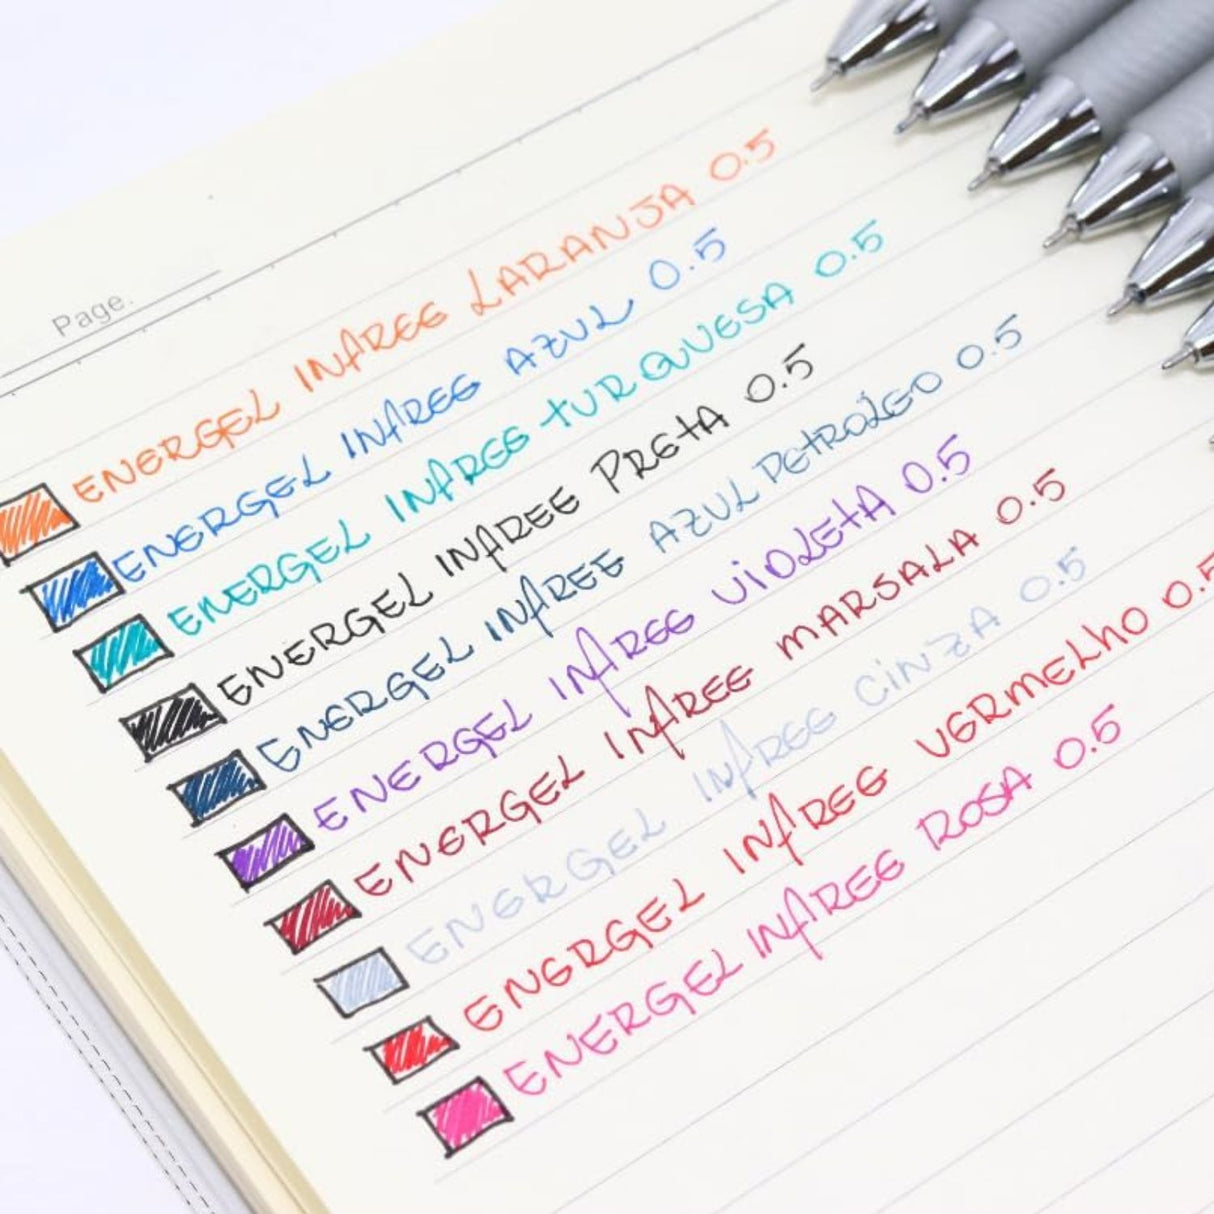 Page.
ENERGEL INFREE LARANJA 0.5
ENERGEL INFREE AZUL 0.5
ENERGEL INFREE TURQUESA 0.5
ENERGEL INFREE PRETA 0.5
ENERGEL INFREE AZUL PETRÓLEO 0.5
ENERGEL INFREE VIOLETA 0.5
ENERGEL INFREE MARSALA 0.5
ENERGEL INFREE CINZA 0.5
ENERGEL INFREE VERMELHO 0.5
ENERGEL INFREE ROSA 0.5